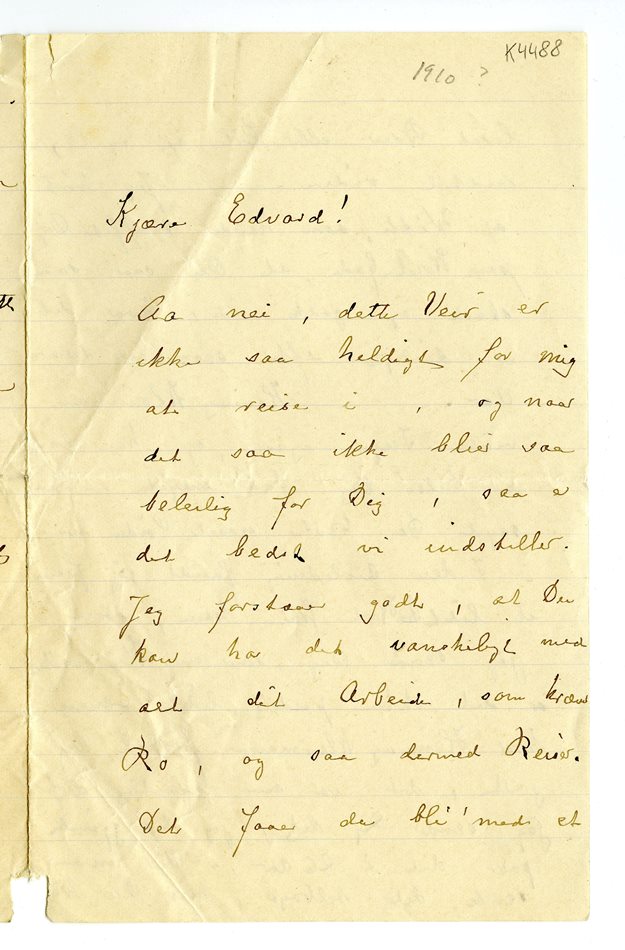 K4488
1910 ?
Kjære Edvard!
Aa nei, dette Veir er
ikke saa heldigt for mig
at reise i, og naar
det saa ikke blier saa
beleilig for Dig, saa e
det bedst vi indstiller.
Jeg forstaar godt, at Du
kan ha det vanskeligt med
alt dit Arbeide, som kræver
Ro, og saa dermed Reiser.
Det faaer da bli' med et